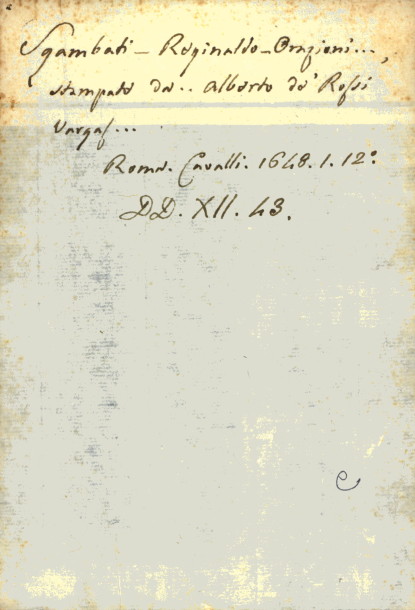 Sgambati - Reginaldo - Orazioni...,
stampate da.. Alberto de' Rossi
Vargas...
Roma. Cavalli. 1648. 1. 12°.
DD. XII. 43.